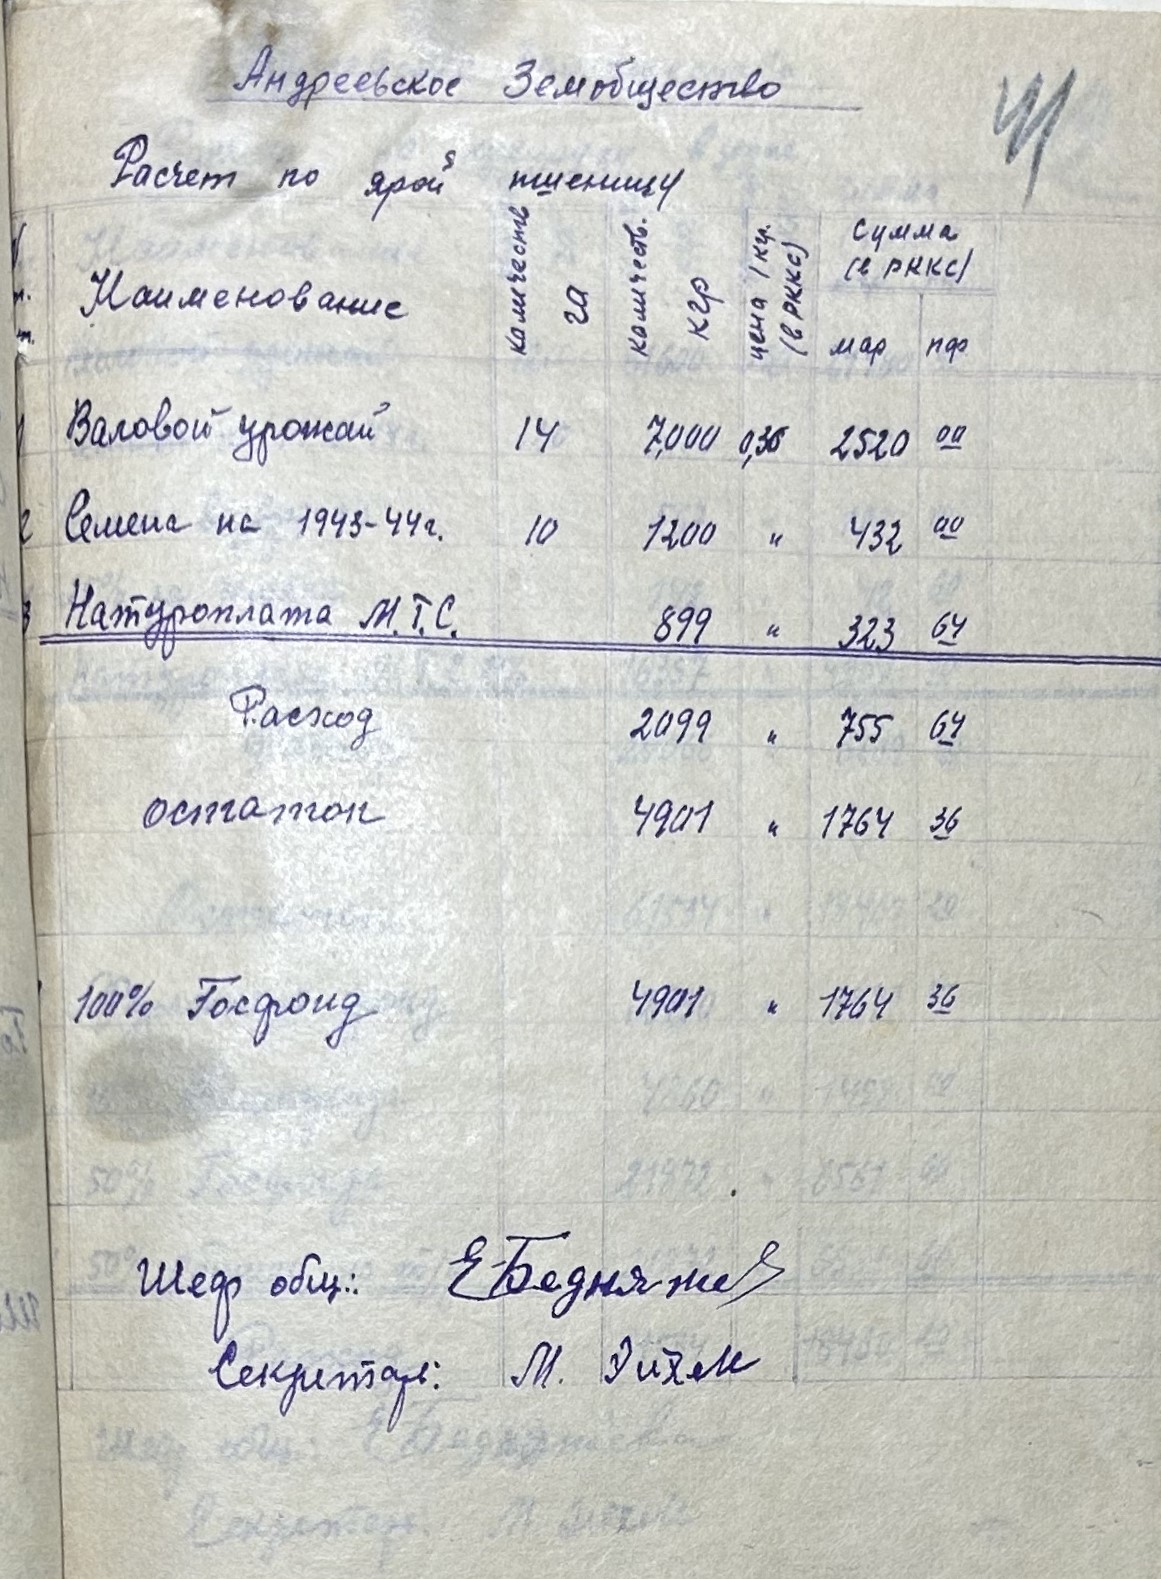 Андреевское Земобщество
Расчет по ярой пшеницу
Наименование количеств га количеств. кгр цена 1 кг. (в РККС) сумма (в РККС) мар пф
1 Валовой урожай 14 7,000 0,36 2520 00
2 Семена на 1943-44г. 10 1200 " 432 00
3 Натуроплата М.Т.С. 899 " 323 64
Расход 2099 " 755 64
остаток 4901 " 1764 36
100% Госфонд 4901 " 1764 36
Шеф общ.:
Секретарь: М.